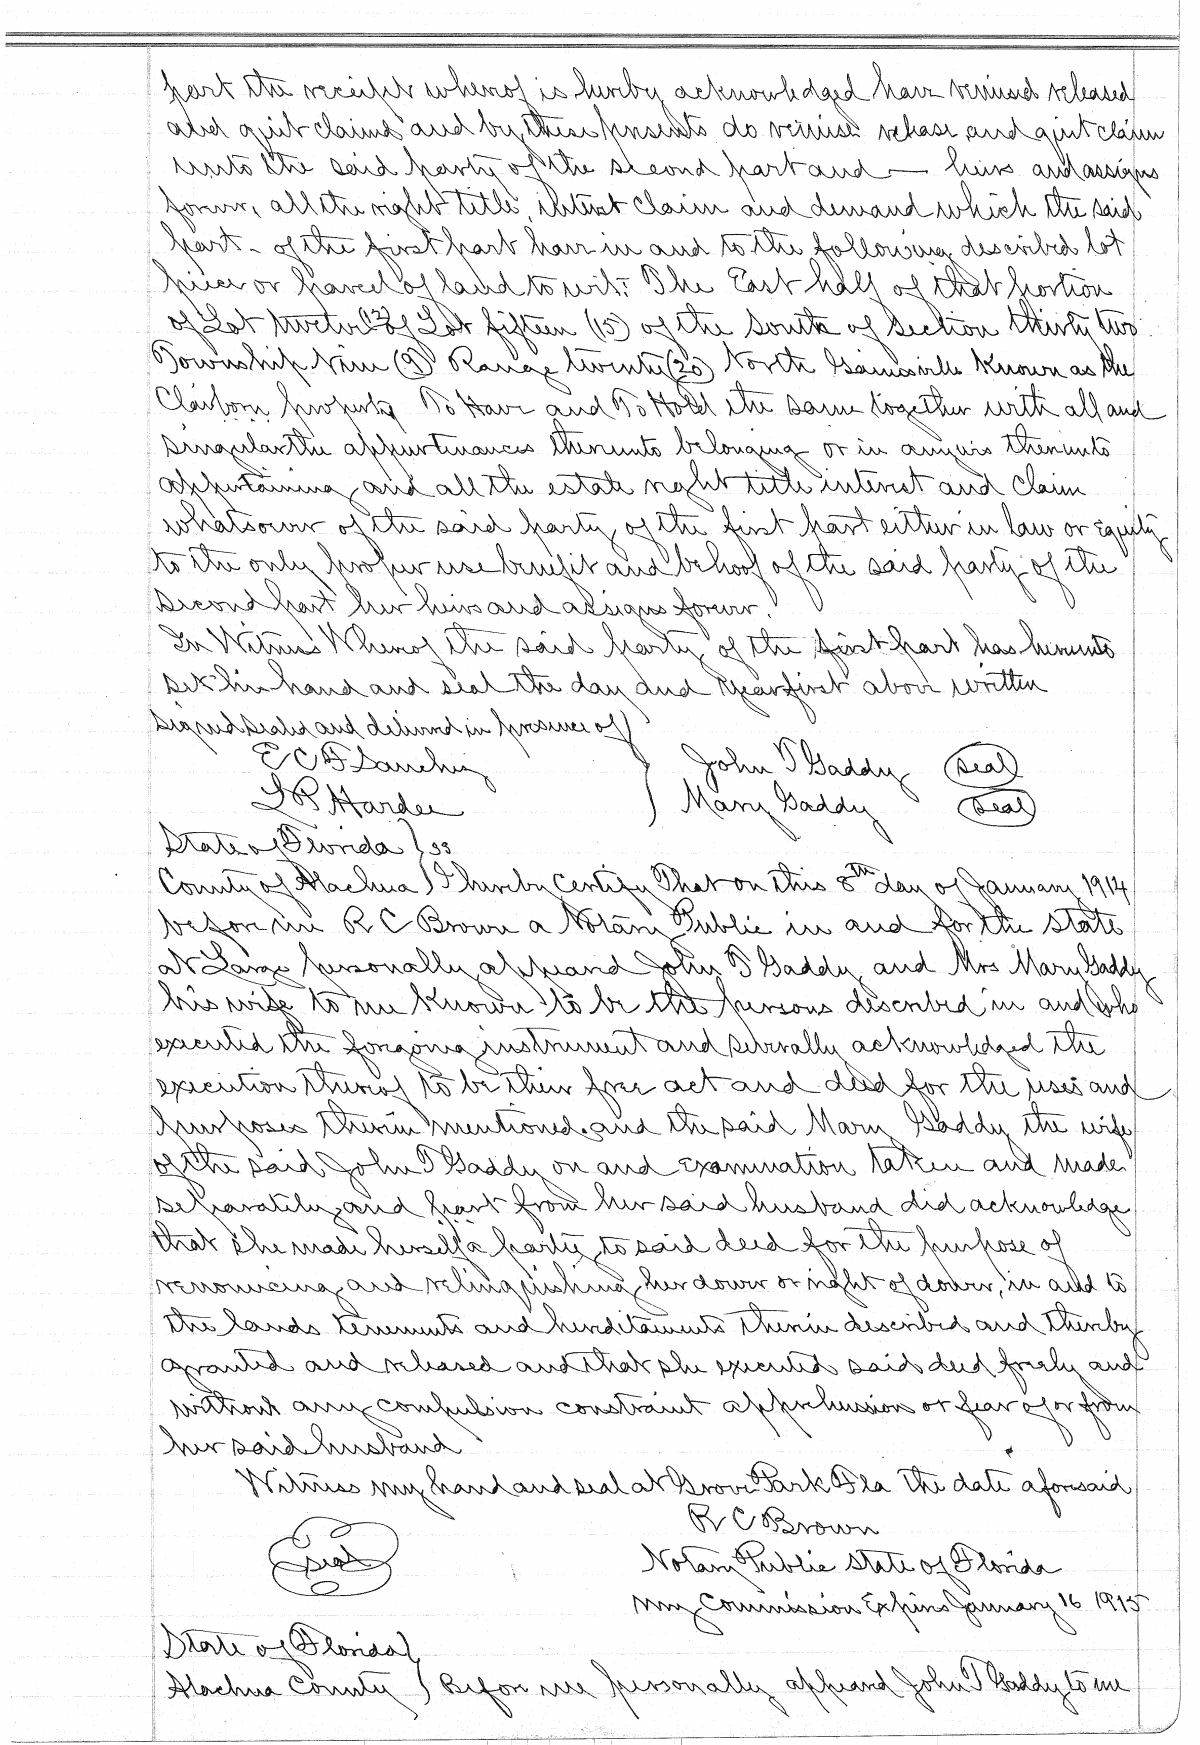 part the receipt whereof is hereby acknowledged have remised released
and quit claimed and by these presents do remise release and quit claim
unto the said party of the second part and — heirs and assigns
forever, all the right title interest claim and demand which the said
part - of the first part have in and to the following described lot
piece or parcel of land to wit:- The East half of that portion
of Lot twelve (12) of Lot fifteen (15) of the South of Section thirty two
Township Nine (9) Range twenty (20) North Gainesville Known as the
Claiborn property To Have and To Hold the same together with all and
singular the appurtenances thereunto belonging or in anywis thereunto
appertaining and all the estate right title interest and claim
whatsoever of the said party of the first part either in law or Equity
to the only proper use benefit and behoof of the said party of the
second part her heirs and assigns forever.
In Witness Whereof the said party of the first part has hereunto
set his hand and seal the day and year first above written
Signed sealed and delivered in presence of )
E C F Sanchez John T Gaddy (seal)
L P Hardee ) Mary Gaddy (seal)
State of Florida ) ss
County of Alachua ) I hereby certify That on this 8th day of January 1914
before me R C Brown a Notary Public in and for the State
at Large personally appeared John T Gaddy and Mrs Mary Gaddy
his wife to me known to be the persons described in and who
executed the foregoing instrument and severally acknowledged the
execution thereof to be their free act and deed for the uses and
purposes therein mentioned and the said Mary Gaddy the wife
of the said John T Gaddy on and examination taken and made
separately and part from her said husband did acknowledge
that she made herself a party to said deed for the purpose of
renouncing and relinquishing her dower or right of dower, in and to
the lands tenements and herditaments therein described and thereby
granted and released and that she executed said deed freely and
without any compulsion constraint apprehension or fear of or from
her said husband
Witness my hand and seal at Grove Park Fla the date aforesaid
R C Brown
(seal) Notary Public State of Florida
My Commission Expires January 16 1915
State of Florida )
Alachua County ) Before me personally appeared John T Gaddy to me